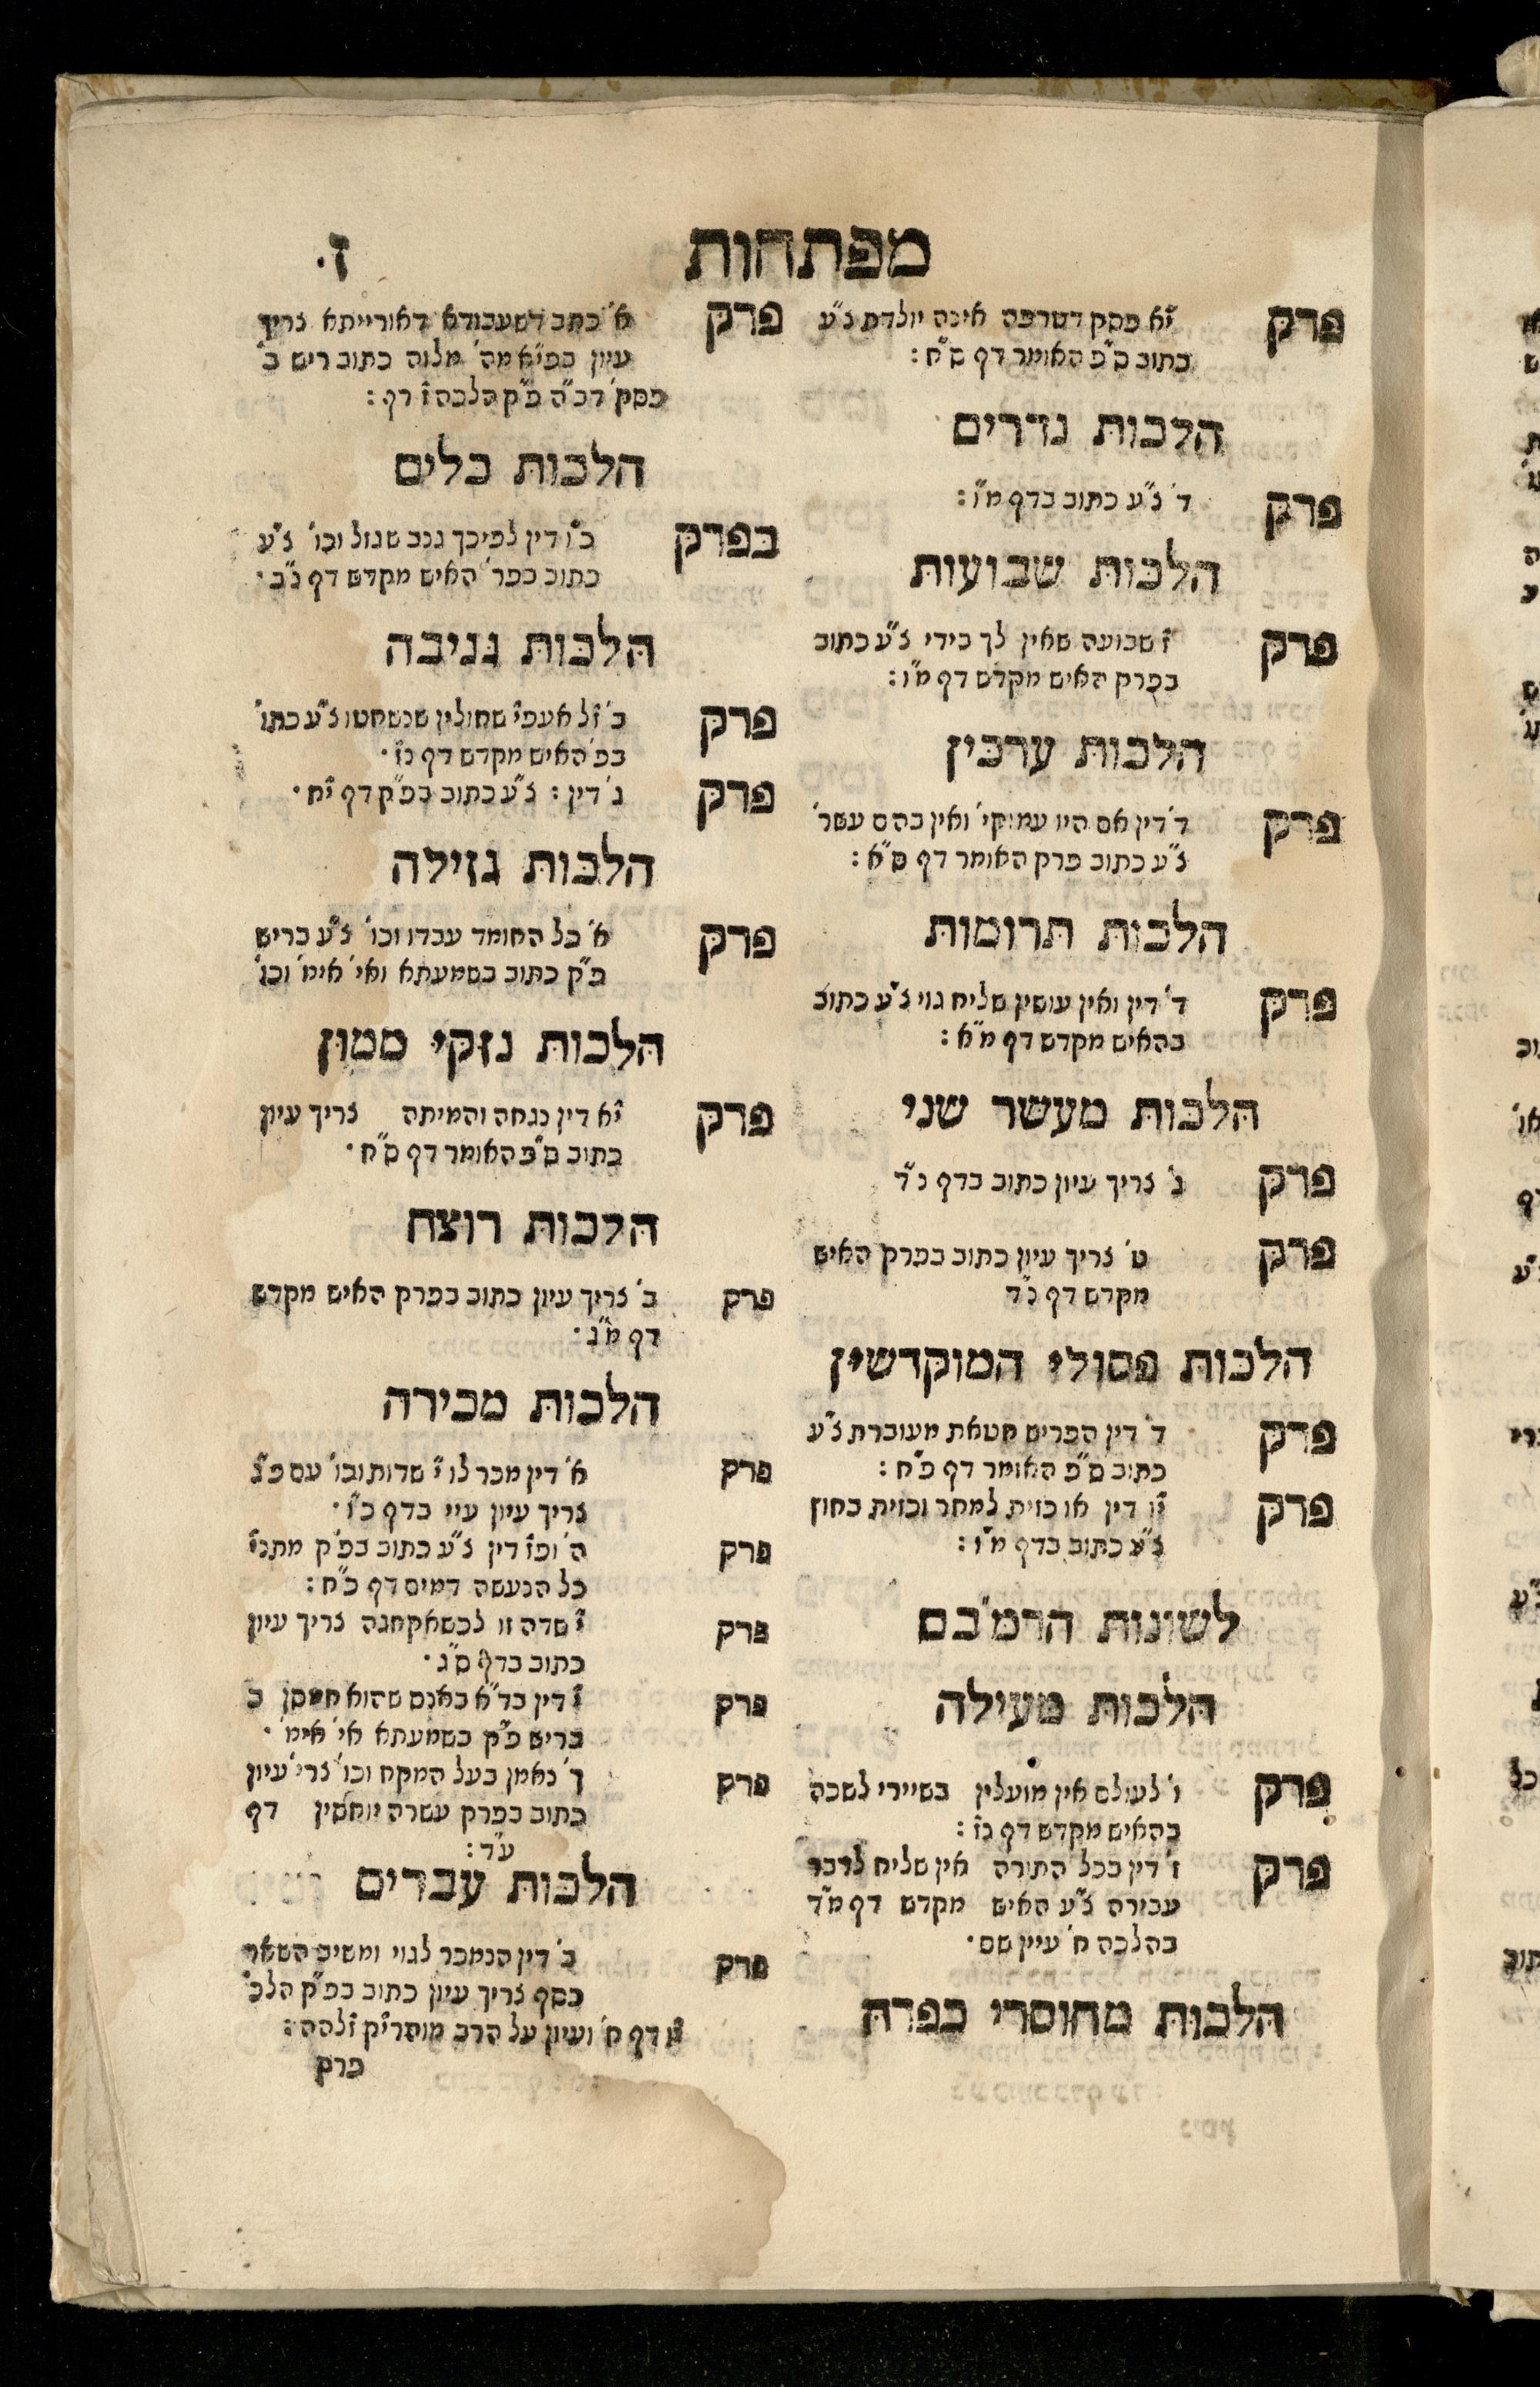 מפתחות
ז.
פרק י"א פסק דטרפה אינה יולדת צ"ע
כתוב ס"פ האומר דף ס"ח:
הלכות נדרים
פרק ד' צ"ע כתוב בדף מ"ו:
הלכות שבועות
פרק ז' שבועה שאין לך בידי צ"ע כתוב
בפרק האיש מקדש דף מ"ו:
הלכות ערכין
פרק ד' דין אם היו עמוקי' ואין בהם עשר'
צ"ע כתוב פרק האומר דף ס"א:
הלכות תרומות
פרק ד' דין ואין עושין שליח גוי צ"ע כתוב
בהאיש מקדש דף מ"א:
הלכות מעשר שני
פרק ג' צריך עיון כתוב בדף נ"ד
פרק ט' צריך עיון כתוב בפרק האיש
מקדש דף נ"ד
הלכות פסולי המוקדשין
פרק ד' דין הפריש חטאת מעוברת צ"ע
כתוב ס"פ האומר דף ס"ח:
פרק י"ו דין או כזית למחר וכזית בחוץ
צ"ע כתוב בדף מ"ו:
לשונות הרמ"בם
הלכות מעילה
פרק ו' לעולם אין מועלין בשיירי לשכה
בהאיש מקדש דף נ"ז:
פרק ז' דין בכל התורה אין שליח לדבר
עבירה צ"ע האיש מקדש דף מ"ד
בהלכה ח' עיין שם.
הלכות מחוסרי כפרה
פרק א' כתב דשעבודא דאורייתא צריך
עיון בפי"א מה' מלוה כתוב ריש ב'
בפסק' רב"ה פ"ק הלכה ז' דף:
הלכות כלים
בפרק כ"ו דין לפיכך גנב שגזל וכו' צ"ע
כתוב בפר' האיש מקדש דף נ"ב.
הלכות גניבה
פרק ב' ז"ל אעפ"י שחולין שנשחטו צ"ע כתו'
בפ' האיש מקדש דף נ"ז.
פרק ג' דין: צ"ע כתוב בפ"ק דף י"ח.
הלכות גזילה
פרק א' כל החומד עבדו וכו' צ"ע בריש
פ"ק כתוב בשמעתא ואי' אימ' וכו'
הלכות נזקי ממון
פרק י"א דין נגחה והמיתה צריך עיון
כתוב ס"פ האומר דף ס"ח.
הלכות רוצח
פרק ב' צריך עיון כתוב בפרק האיש מקדש
דף מ"ג.
הלכות מכירה
פרק א' דין מכר לו י' שדות וכו' עם פ"ג
צריך עיון עיי' בדף כ"ו.
פרק ה' ופ"ז דין צ"ע כתוב בפ"ק מתני'
כל הנעשה דמים דף כ"ח:
פרק י' שדה זו לכשאקחנה צריך עיון
כתוב בדף ס"ג.
פרק י' דין בד"א באנס שהוא חמסן כ'
בריש פ"ק בשמעתא אי' אימ'.
פרק ך' נאמן בעל המקח וכו' צרי' עיון
כתוב בפרק עשרה יוחסין דף
ע"ד:
הלכות עבדים
פרק ב' דין הנמכר לגוי ומשיב השאר
כסף צריך עיון כתוב בפ"ק הלכ'
דף ח' ועיון על הרב מוהרי"ק זלהה:
פרק